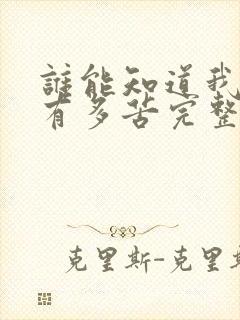 誰能知道我
有多苦完整
克里斯-克里斯